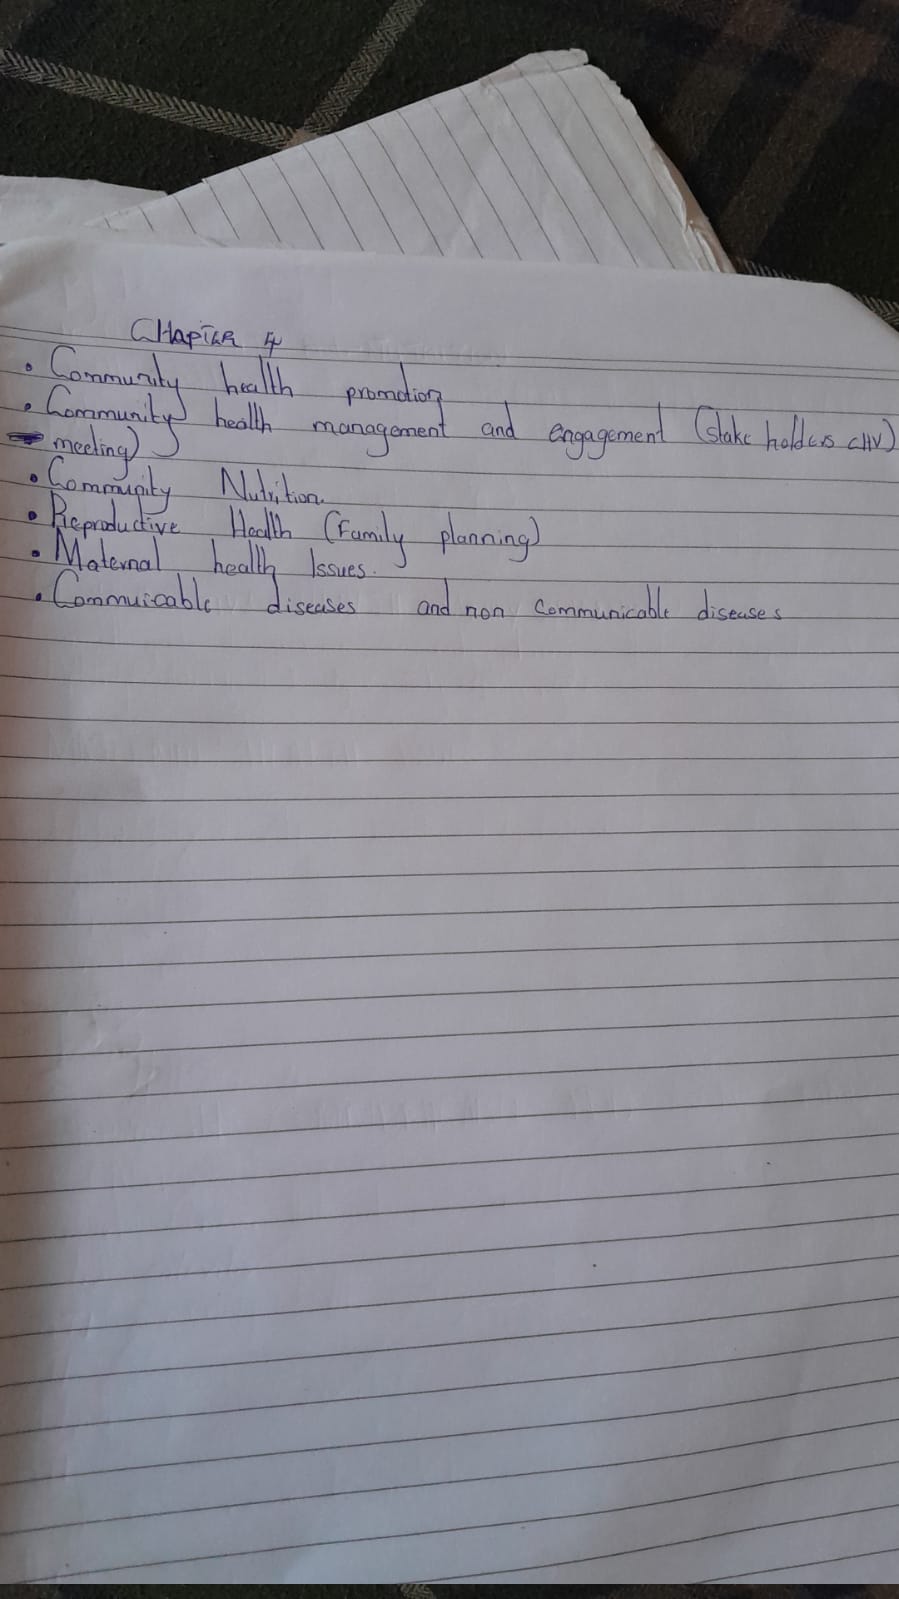 CHapTER 4
• Community health promotion
• Community health management and engagement (stake holders CHV)
meeting)
• Community Nutrition.
• Reproductive Health (Family planning)
• Maternal health Issues.
• Commuicable diseases and non communicable diseases